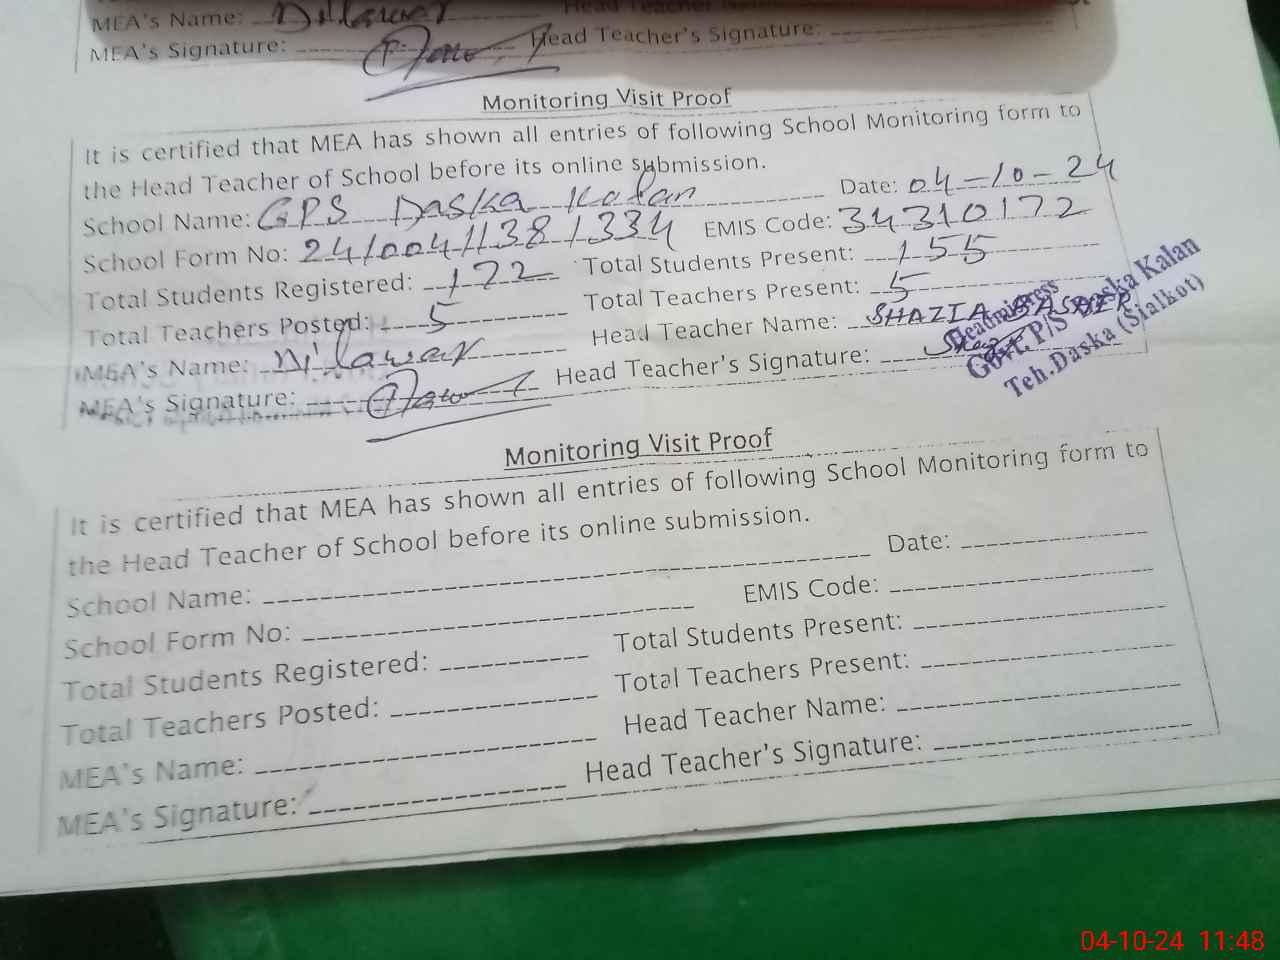 MEA's Name: Dilawar Head Teacher Name:
MEA's Signature: Head Teacher's Signature:
Monitoring Visit Proof
It is certified that MEA has shown all entries of following School Monitoring form to
the Head Teacher of School before its online submission.
School Name: GPS Daska Kalan Date: 04-10-24
School Form No: 24100411381334 EMIS Code: 34310172
Total Students Registered: 172 Total Students Present: 155
Total Teachers Posted: 5 Total Teachers Present: 5
MEA's Name: Dilawar Head Teacher Name: SHAZIA BASHIR
MEA's Signature: Head Teacher's Signature:
Headmistress
Govt. P/S Daska Kalan
Teh.Daska (Sialkot)
Monitoring Visit Proof
It is certified that MEA has shown all entries of following School Monitoring form to
the Head Teacher of School before its online submission.
School Name: Date:
School Form No: EMIS Code:
Total Students Registered: Total Students Present:
Total Teachers Posted: Total Teachers Present:
MEA's Name: Head Teacher Name:
MEA's Signature: Head Teacher's Signature:
04-10-24 11:48